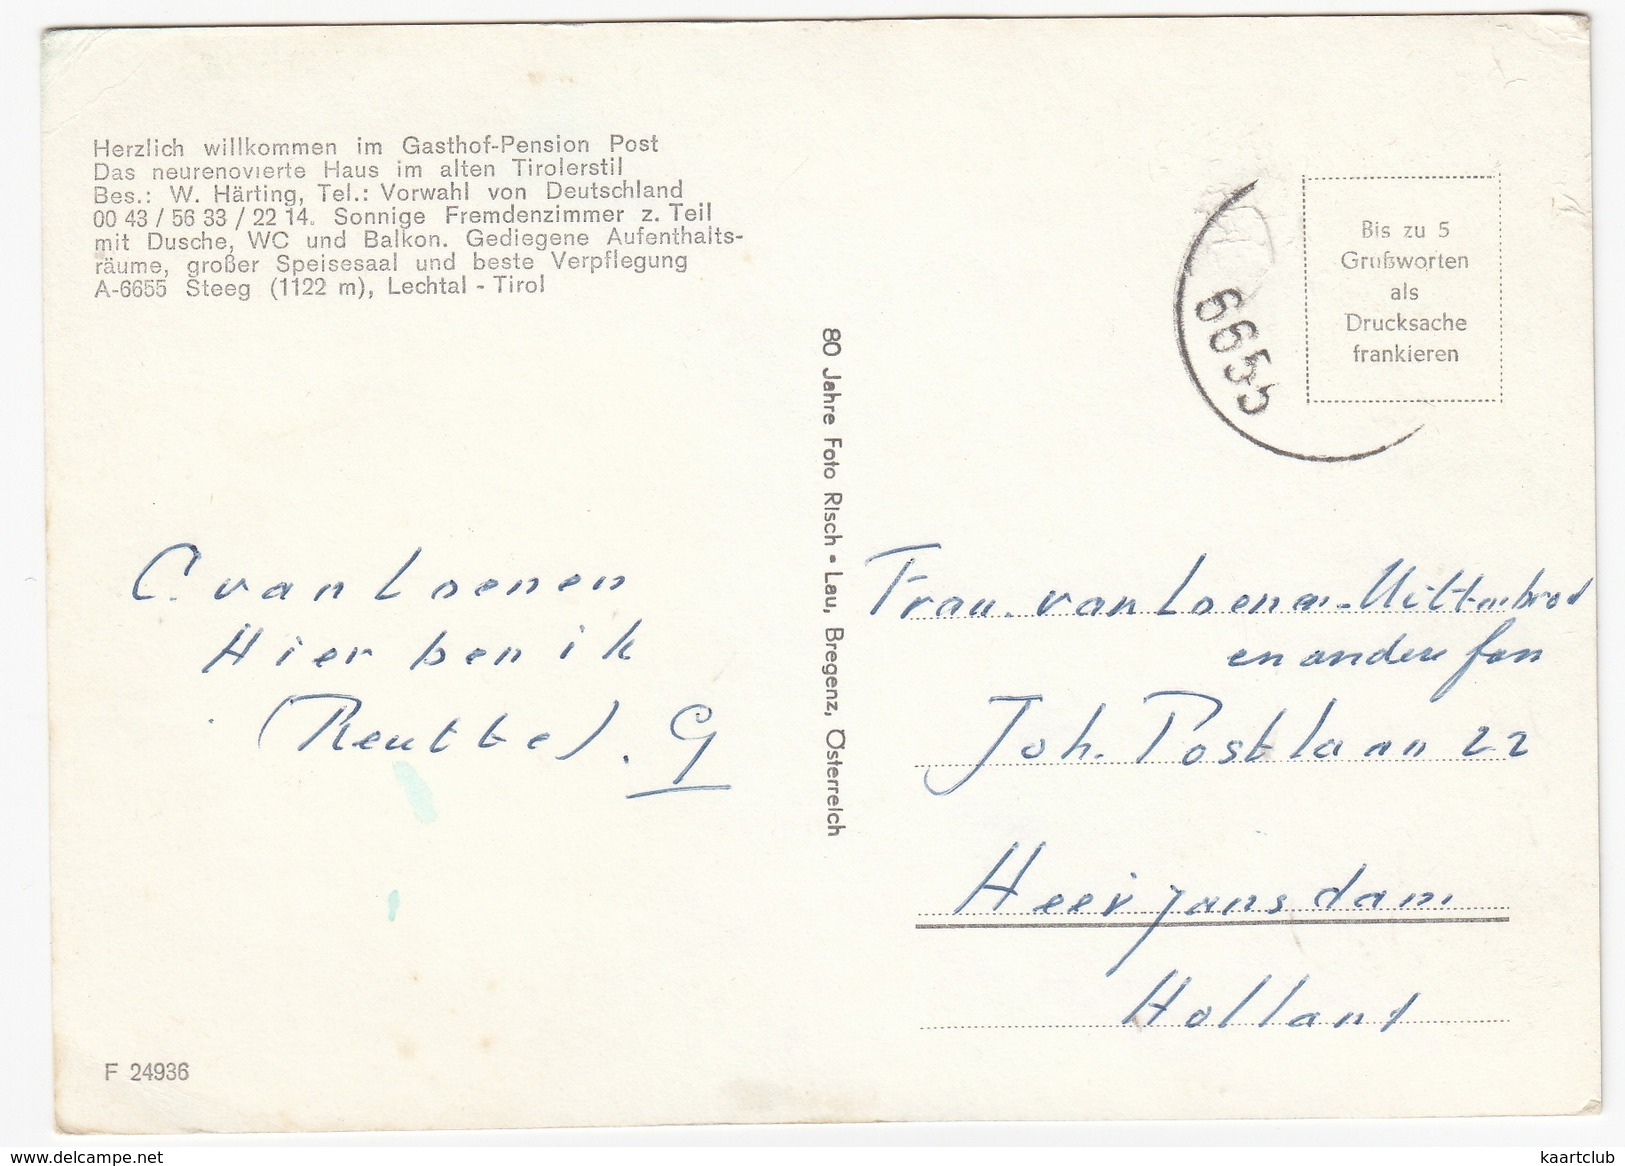 Herzlich willkommen im Gasthof-Pension Post
Das neurenovierte Haus im alten Tirolerstil
Bes.: W. Härting, Tel.: Vorwahl von Deutschland
00 43 / 56 33 / 22 14. Sonnige Fremdenzimmer z. Teil
mit Dusche, WC und Balkon. Gediegene Aufenthalts-
räume, großer Speisesaal und beste Verpflegung
A-6655 Steeg (1122 m), Lechtal - Tirol
C. van Loenen
Hier ben ik
(Reutte). G
F 24936
80 Jahre Foto Risch • Lau, Bregenz, Österreich
6655
Bis zu 5
Grußworten
als
Drucksache
frankieren
Frau. van Loenen-Mittenbrod
en andere fans
Joh. Postlaan 22
Heerjansdam
Holland
www.delcampe.net
kaartclub